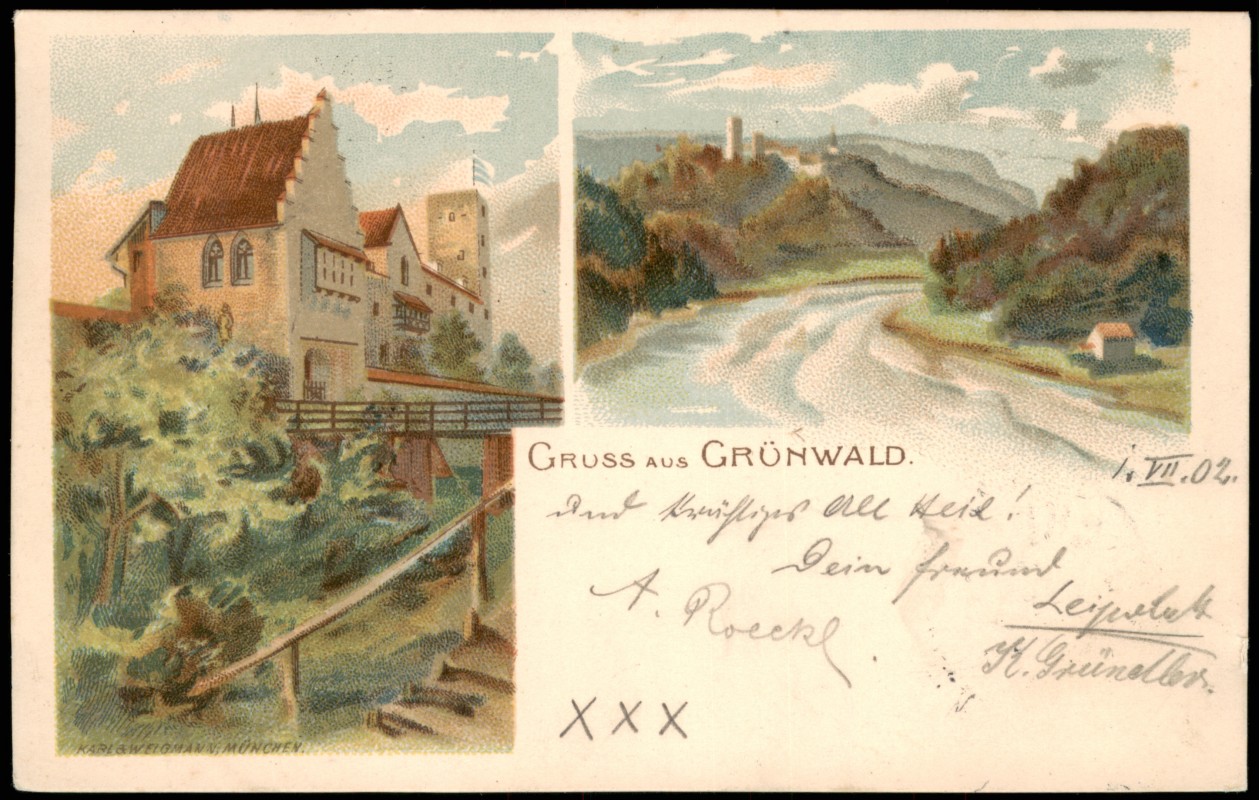 GRUSS AUS GRÜNWALD.
1. VII. 02.
und kräftiges All Heil!
Dein Freund
A. Roeckl.
K. Gründler.
XXX
KARL & WEIGMANN, MÜNCHEN.